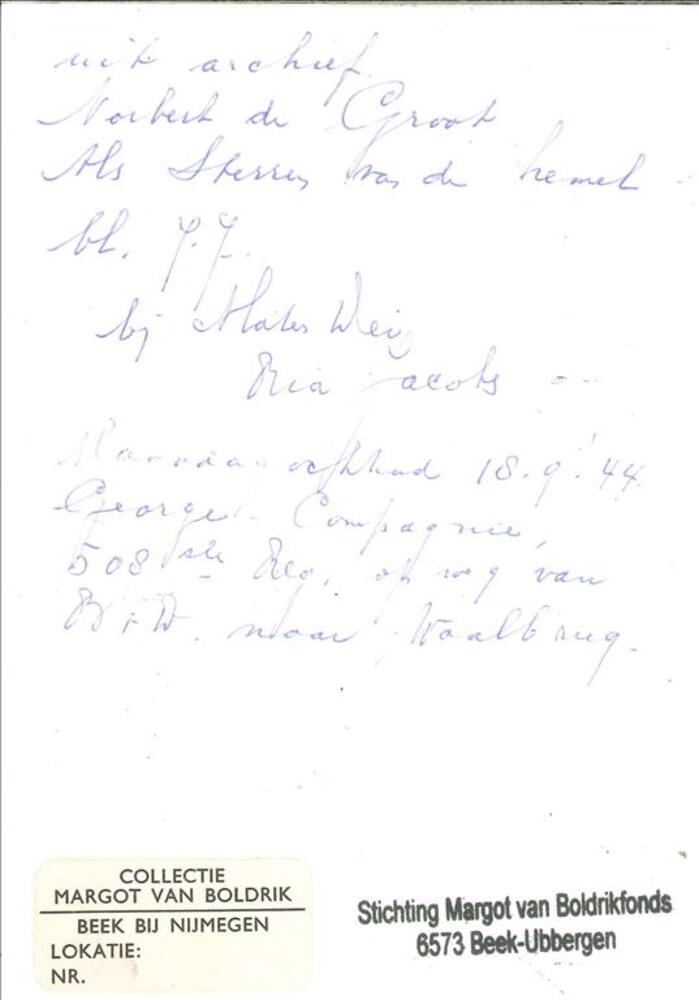 uit archief
Norbert de Groot
Als Sterren van de hemel
bl. 77.
bij Mater Wei
Ria Jacobs
Maandagochtend 18.9.'44
George-Compagnie,
508ste Reg. op weg van
B + D. naar Waalbrug.
COLLECTIE
MARGOT VAN BOLDRIK
BEEK BIJ NIJMEGEN
LOKATIE:
NR.
Stichting Margot van Boldrikfonds
6573 Beek-Ubbergen